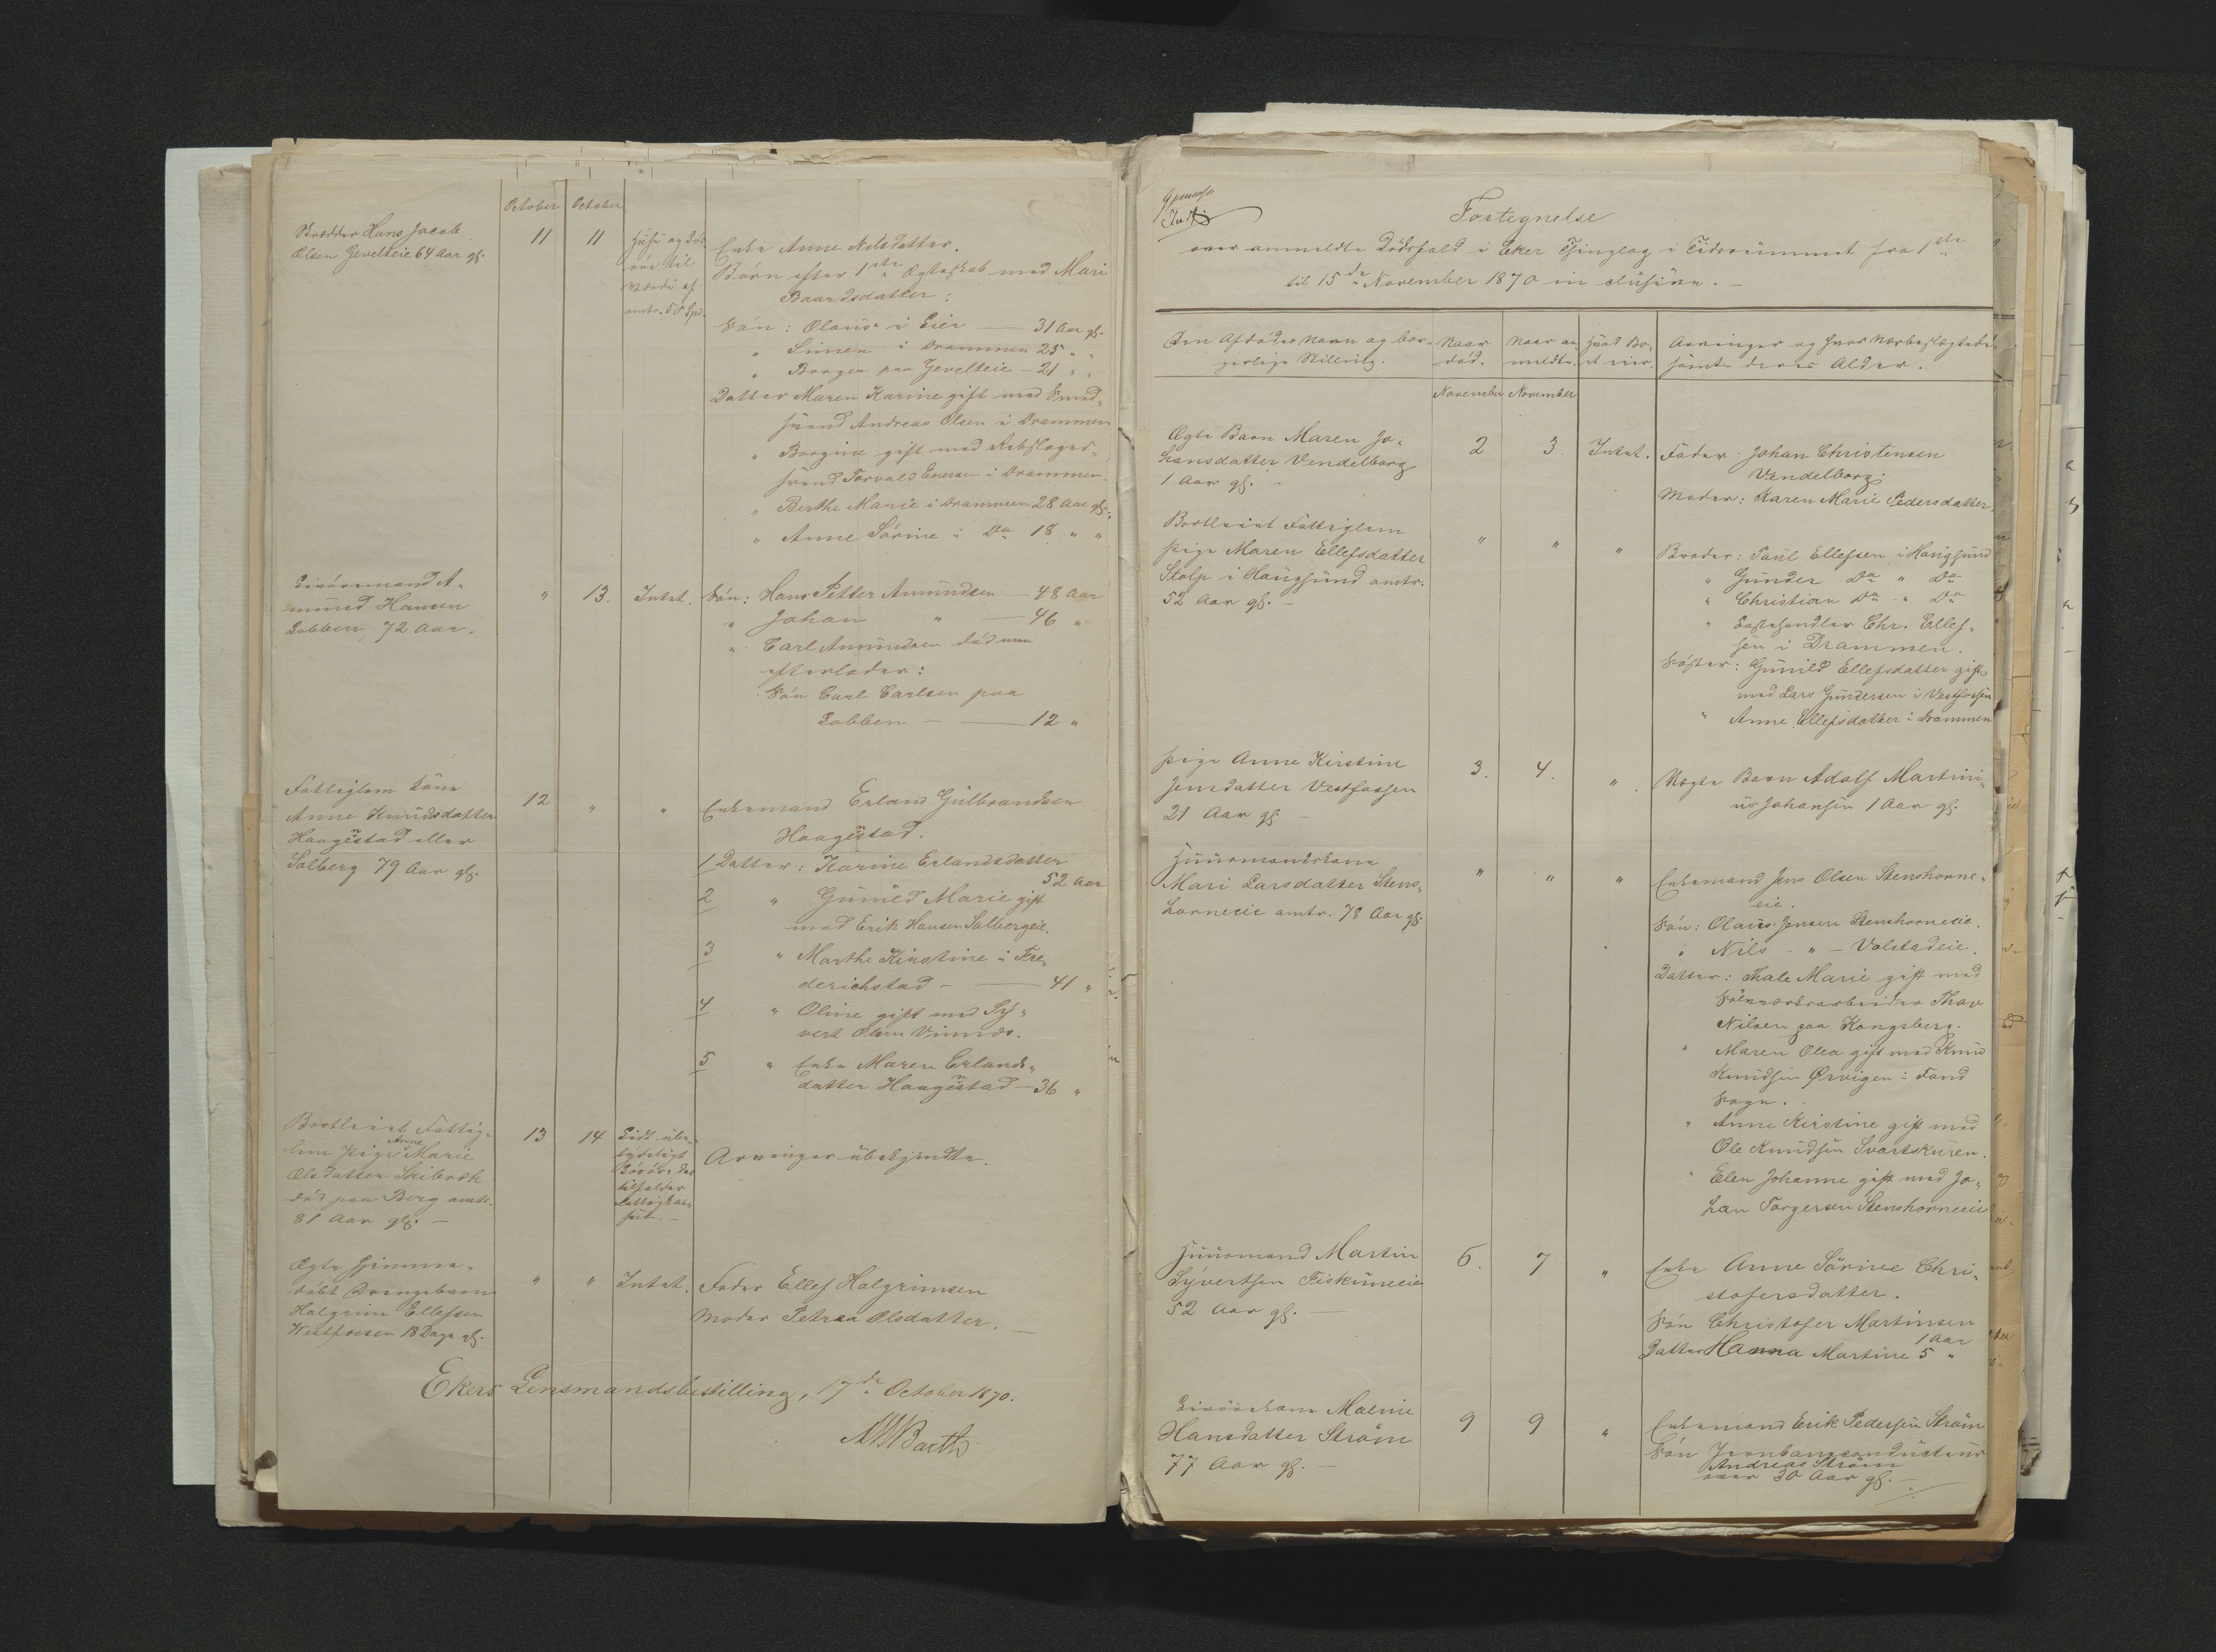 October October
Skrædder Hans Jacob
Olsen Gevelteie 64 Aar gl.
11 11
Huse og Løs-
øre til
Værdi af
amtr. 50 Spd.
Enke Anne Nilsdatter.
Børn efter 1ste Ægteskab med Mari
Baardsdatter:
Søn: Olaus i Eier — 31 Aar gl.
" Simen i Drammen 25 " "
" Borger paa Gevelteie — 21 " "
Datter Maren Karine gift med Smed-
svend Andreas Olsen i Drammen
" Borgine gift med Rebslager-
svend Torvald Enersen i Drammen
" Berthe Marie i Drammen 28 Aar gl.
" Anne Sørine i Do 18 " "
Livøremand A-
mund Hansen
Lobben, 72 Aar.
" 13. Intet.
Søn: Hans Petter Amundsen — 48 Aar
" Johan " — 46 "
" Carl Amundsen død men
efterlader:
Søn Carl Carlsen paa
Lobben — 12 "
Fattiglem Kone
Anne Knudsdatter
Haagestad eller
Solberg 79 Aar gl.
12 " "
Enkemand Erland Gulbrandsen
Haagestad.
1 Datter: Karine Erlandsdatter
52 Aar
2 " Gunild Marie gift
med Erik Hansen Solbergeie.
3 " Marthe Kirstine i Fre-
derichstad — 41 "
4 " Oline gift med Sy-
vert Vinnes.
5 " Enke Maren Erlands-
datter Haagestad — 36 "
Bortleiet Fattig-
lem Pige Anne Marie
Olsdatter Skibræk
død paa Berg amtr.
81 Aar gl. —
13 14
Lidt ube-
tydeligt
Løsøre der
tilfalder
Fattigkas-
sen. —
Arvinger ubekjendte.
Ægte hjemme-
døbt Drengebarn
Halgrim Ellefsen
Westfossen 18 Dage gl.
" " Intet.
Fader Ellef Halgrimsen
Moder Petrea Olsdatter. —
Ekers Lensmandsbestilling, 17de October 1870.
Barth
Fortegnelse
over anmeldte Dødsfald i Eker Thinglag i Tidsrummet fra 1ste
til 15de November 1870 inclusive. —
Den Afdødes Navn og bor-
gerlige Stilling.
Naar
død.
Naar an-
meldte.
Hvad Bo-
et eier.
Arvinger og hvor Nærbeslægtede
samt deres Alder.
November November
Ægte Barn Maren Jo-
hansdatter Vendelborg
1 Aar gl. —
2 3 Intet.
Fader: Johan Christensen
Vendelborg.
Moder: Karen Marie Pedersdatter.
Bortleiet Fattiglem
Pige Maren Ellefsdatter
Stolp i Haugsund amtr.
52 Aar gl. —
" " "
Broder: Paul Ellefsen i Haugsund
" Gunder Do " Do
" Christian Do " Do
" Chr. Ellef-
sen i Drammen.
Søster: Gunild Ellefsdatter gift
med Lars Gundersen i Vestfossen
" Anne Ellefsdatter i Drammen
Pige Anne Kirstine
Jensdatter Vestfossen
21 Aar gl. —
3. 4. "
Uægte Barn Adolf Martini-
us Johansen 1 Aar gl.
Huusmandskone
Mari Larsdatter Stens-
horneeie amtr. 78 Aar gl.
" " "
Enkemand Jens Olsen Stenshorne-
eie.
Søn: Olaus Jensen Stenshorneeie.
" Nils - " - Volstadeie.
Datter: Thale Marie gift med
Sølvverksarbeider Thor
Nilsen paa Kongsberg.
" Maren Olea gift med Knud
Knudsen Ørvigen i Sand
Sogn.
" Anne Kirstine gift med
Ole Knudsen Svartskuren.
" Elen Johanne gift med Jo-
han Torgersen Stenshorneeie
Huusmand Martin
Syvertsen Fiskumeeie
52 Aar gl. —
6. 7 "
Enke Anne Sørine Chri-
stofersdatter.
Søn Christofer Martinsen
1 Aar
Datter Hanna Martine 5 "
Livørekone Malene
Hansdatter Strøm
77 Aar gl. —
9 9 "
Enkemand Erik Pedersen Strøm
Søn Jernbaneconducteur
Andreas Strøm
over 30 Aar gl. —